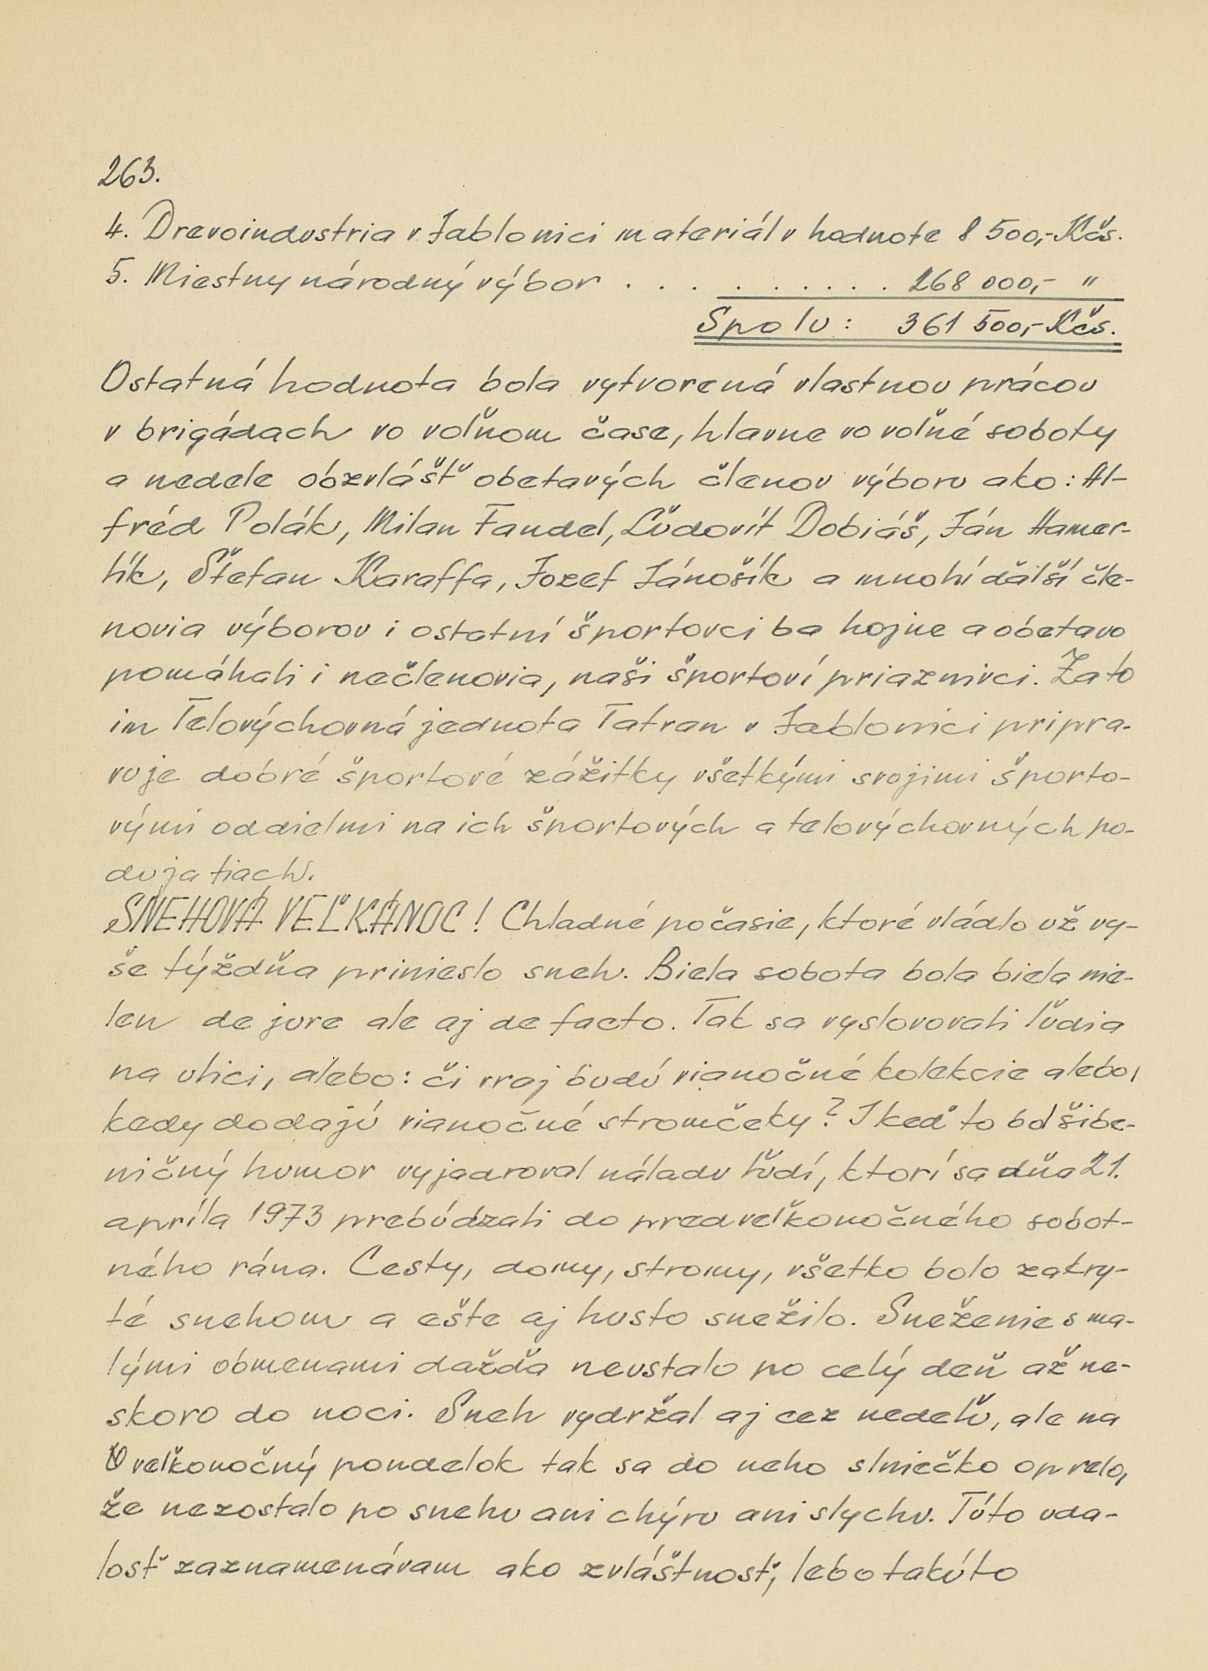 263.
4. Drevoindustria v Jablonici materiál v hodnote 8 500,- Kčs.
5. Miestny národný výbor . . . . . . . . . . 268 000,- "
Spolu: 361 500,- Kčs.
Ostatná hodnota bola vytvorená vlastnou prácou
v brigádach vo voľnom čase, hlavne vo voľné soboty
a nedele obzvlášť obetavých členov výboru ako: Al-
fréd Polák, Milan Fandel, Ľudovít Dobiáš, Ján Hamer-
lík, Štefan Karaffa, Jozef Jánošík a mnohí ďálší čle-
novia výborov i ostatní športovci ba hojne a obetavo
pomáhali i nečlenovia, naši športoví priaznivci. Za to
im Telovýchovná jednota Tatran v Jablonici pripra-
vuje dobré športové zážitky všetkými svojimi športo-
vými oddielmi na ich športových a telovýchovných po-
dujatiach.
SNEHOVÁ VEĽKÁNOC! Chladné počasie, ktoré vládlo už vy-
še týždňa prinieslo sneh. Biela sobota bola biela nie-
len de jure ale aj de facto. Tak sa vyslovovali ľudia
na ulici, alebo: či vraj budú vianočné kolekcie alebo,
kedy dodajú vianočné stromčeky? I keď to bol šibe-
ničný humor vyjadroval náladu ľudí, ktorí sa dňa 21.
apríla 1973 prebúdzali do predveľkonočného sobot-
ného rána. Cesty, domy, stromy, všetko bolo zakry-
té snehom a ešte aj husto snežilo. Sneženie s ma-
lými obmenami dažďa neustalo po celý deň až ne-
skoro do noci. Sneh vydržal aj cez nedeľu, ale na
veľkonočný pondelok tak sa do neho slniečko oprelo,
že nezostalo po snehu ani chýru ani slychu. Túto uda-
losť zaznamenávam ako zvláštnosť, lebo takúto